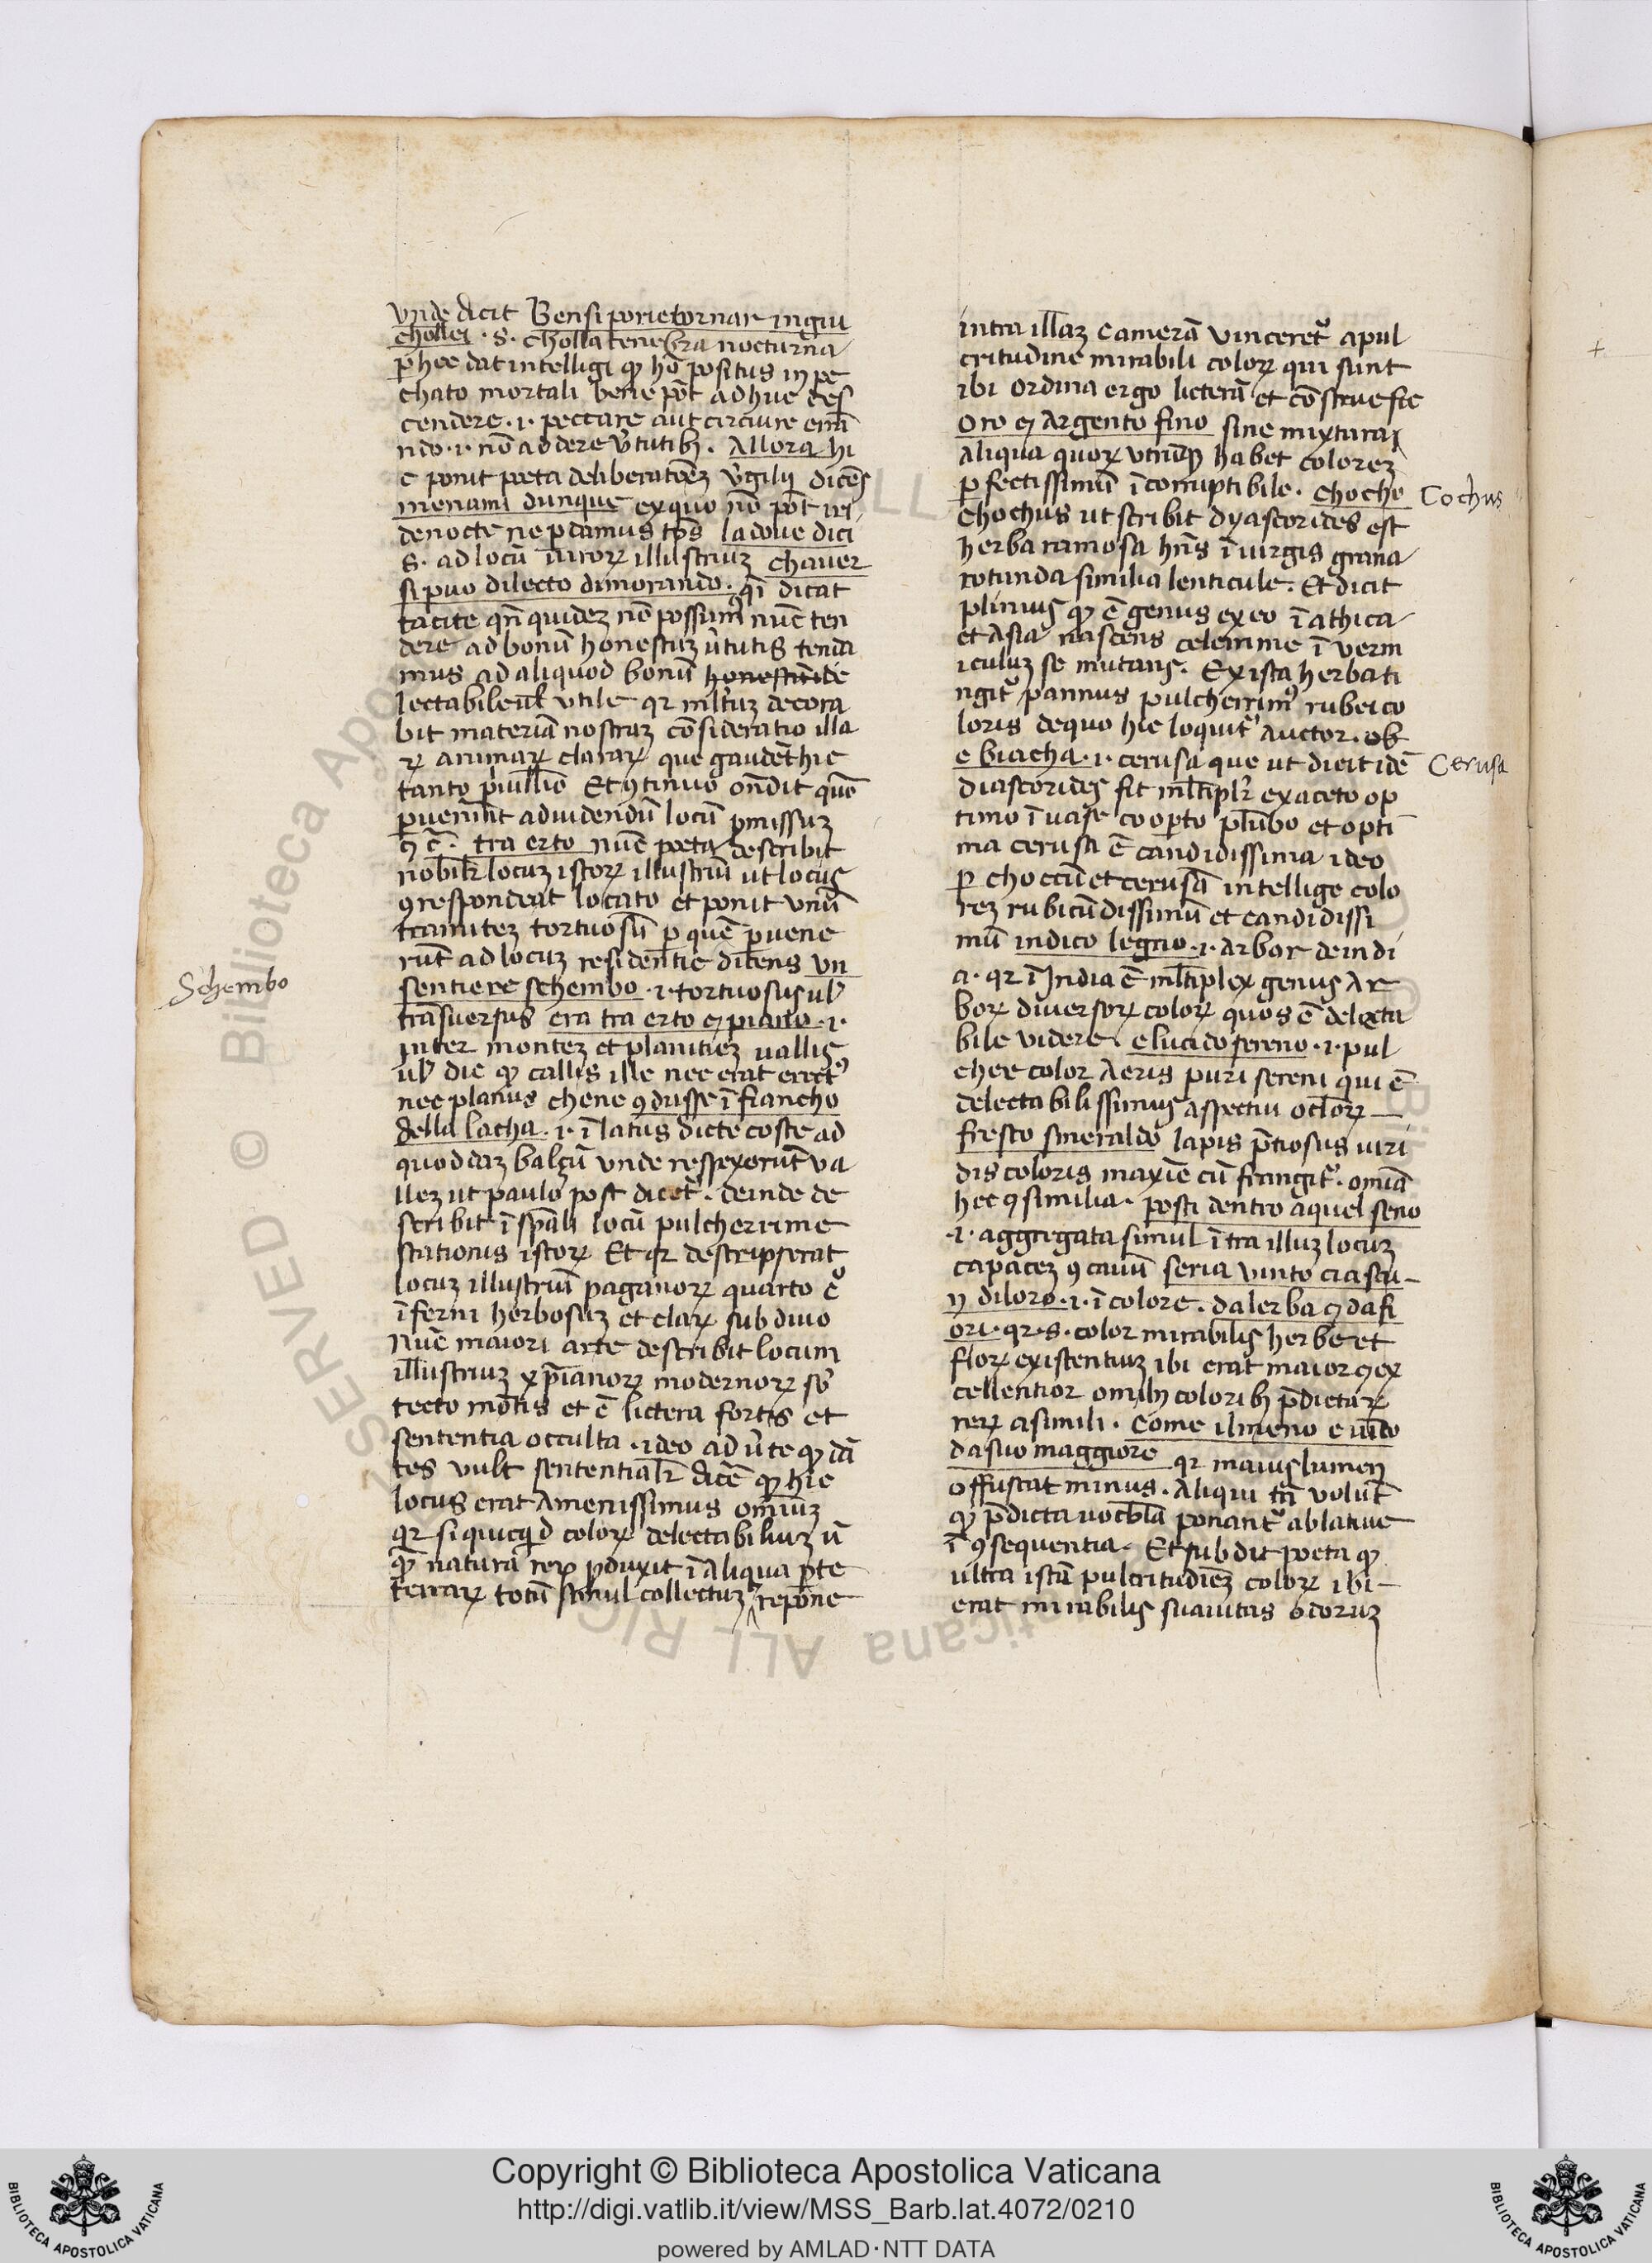 vnde dicit Bensi porie tornar in giu
chollei · S · cholla tenebra nocturna
p hec dat intelligi qͦ hō positus in pe
chato mortali bene pōt adhuc des
cendere · i · peccare aut circuire errā
ndo · i · nō addere ũtutibȝ · Allora hi
c ponit poeta deliberatōeȝ ṽgilij dicēs
menami dunque ex quo nō pōt iri
de nocte ne pdamus tps̄ la doue dici
S · ad locū uiroꝝ illustriuȝ chauer
si puo dilecto dimorando · qi dicat
tacite qn̄ quideȝ nō possumꝰ nūc ten
dere ad bonū honestuȝ ũtutis tenda
mus ad aliquod bonū honestum de
lectabile ul̄ utile qr ml̄tuȝ decora
bit materiā nostraȝ cōsideratio illa
ꝝ animaꝝ claraꝝ que gaudēt hic
tanto priuill̄io Et ꝯtinuo ondit quō
puenerint ad uidendū locū pmissuȝ
tra erto nūc poeta describit
nobilr locuȝ istoꝝ illustriū ut locus
ꝯrespondeat locato et ponit unū
tramiteȝ tortuosū p quē puene
rūt ad locuȝ residentie dicens un
sentiere schembo · i · tortuosus ul̄
trāsuersus era tra erto ⁊ piano · i ·
inter monteȝ et planitieȝ uallis
ul̄ dic qͦ callis ille nec erat erectꝰ
nec planus che ne ꝯdusse ī fiancho
della lacha · i · ī latus dicte coste ad
quoddaȝ balçū unde respexerūt ua
lleȝ ut paulo post dicetᷣ · deinde de
scribit ī spāli locū pulcherrime
stationis istoꝝ Et qr descripserat
locuȝ illustriū paganoꝝ quarto cͦ
īferni herbosuȝ et claꝝ sub diuo
Nūc maiori arte describit locum
illustriuȝ xp̄ianoꝝ modernoꝝ sb̄
tecto mōtis et ē lictera fortis et
sententia occulta · ideo aduͥte qͦ dā
tes uult sententialr dicē qͦ hic
locus erat Amenissimus omīuȝ
qr si quicqd coloꝝ delectabiliuȝ ū
qͣ natura reꝝ pduxit ī aliqua pte
terraꝝ totū simul collectuȝ repone
Schembo
intra illaȝ camerā vinceretᷣ a pul
critudine mirabili coloꝝ qui sunt
ibi ordina ergo licterā et cōstrue sic
oro ⁊ argento fino sine mixtura
aliqua quoꝝ utrūqȝ habet coloreȝ
pfectissimū īcorruptibile · chocho
chochus ut scribit dyascorides est
herba ramosa hn̄s ī uirgis grana
rotunda similia lenticule · Et dicit
plinius qͦ ē genus ex eo ī athica
et Asia nascens celerrime ī verm
iculuȝ se mutans · Ex ista herba ti
ngitᷣ pannus pulcherrimꝰ rubei co
loris de quo hic loquitᷣ Auctor ·
e biacha · i · cerusa que ut dicit idē
diascorides fit ml̄tiplr ex aceto op
timo ī uase cooꝑto plūbo et opti
ma cerusa ē candidissima ideo
p choccū et cerusā intellige colo
reȝ rubicūdissimū et candidissi
mū indico legnio · i · arbor de indi
a · qr ī India ē ml̄tiplex genus Ar
boꝝ diuersoꝝ coloꝝ quos ē delecta
bile uidere · e lucido sereno · i · pul
cher color Aeris puri sereni qui ē
delectabilissimus aspectui ocl̄oꝝ
fresco smeraldo lapis p̄tiosus uiri
dis coloris maxīe cū frangitᷣ · omīa
hec ꝯsimilia · posti dentro a quel seno
· i · aggregata simul ītra illuȝ locuȝ
capaceȝ ꝯcauū seria vinto ciascu
n di loro · i · ī colore · da lerba ⁊ da fi
ori · qr · s · color mirabilis herbe et
floꝝ existentiuȝ ibi erat maior ⁊ ex
cellentior omībȝ coloribȝ p̄dictaꝝ
reꝝ a simili · Come il meno e uīto
da suo maggiore qr maius lumen
offuscat minus · Aliqui tn̄ volūt
qͦ p̄dicta uocbl̄a ponantᷣ ablatiue
ī ꝯsequentia · Et subdit poeta qͦ
ultra istā pulcritudīeȝ coloꝝ ibi
erat mirabilis suauitas odoruȝ
Cochus
Cerusa
Copyright © Biblioteca Apostolica Vaticana
http://digi.vatlib.it/view/MSS_Barb.lat.4072/0210
powered by AMLAD·NTT DATA
BIBLIOTECA APOSTOLICA VATICANA
BIBLIOTECA APOSTOLICA VATICANA